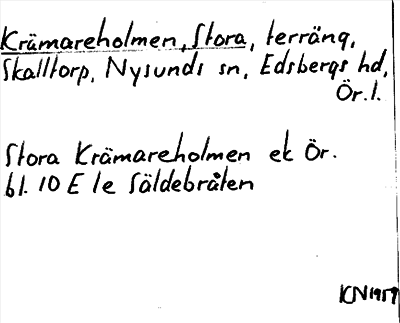 Krämareholmen, Stora, terräng,
Skalltorp, Nysunds sn, Edsbergs hd,
Ör. l.
Stora Krämareholmen ek Ör.
bl. 10 E 1e Säldebråten
KN 1959